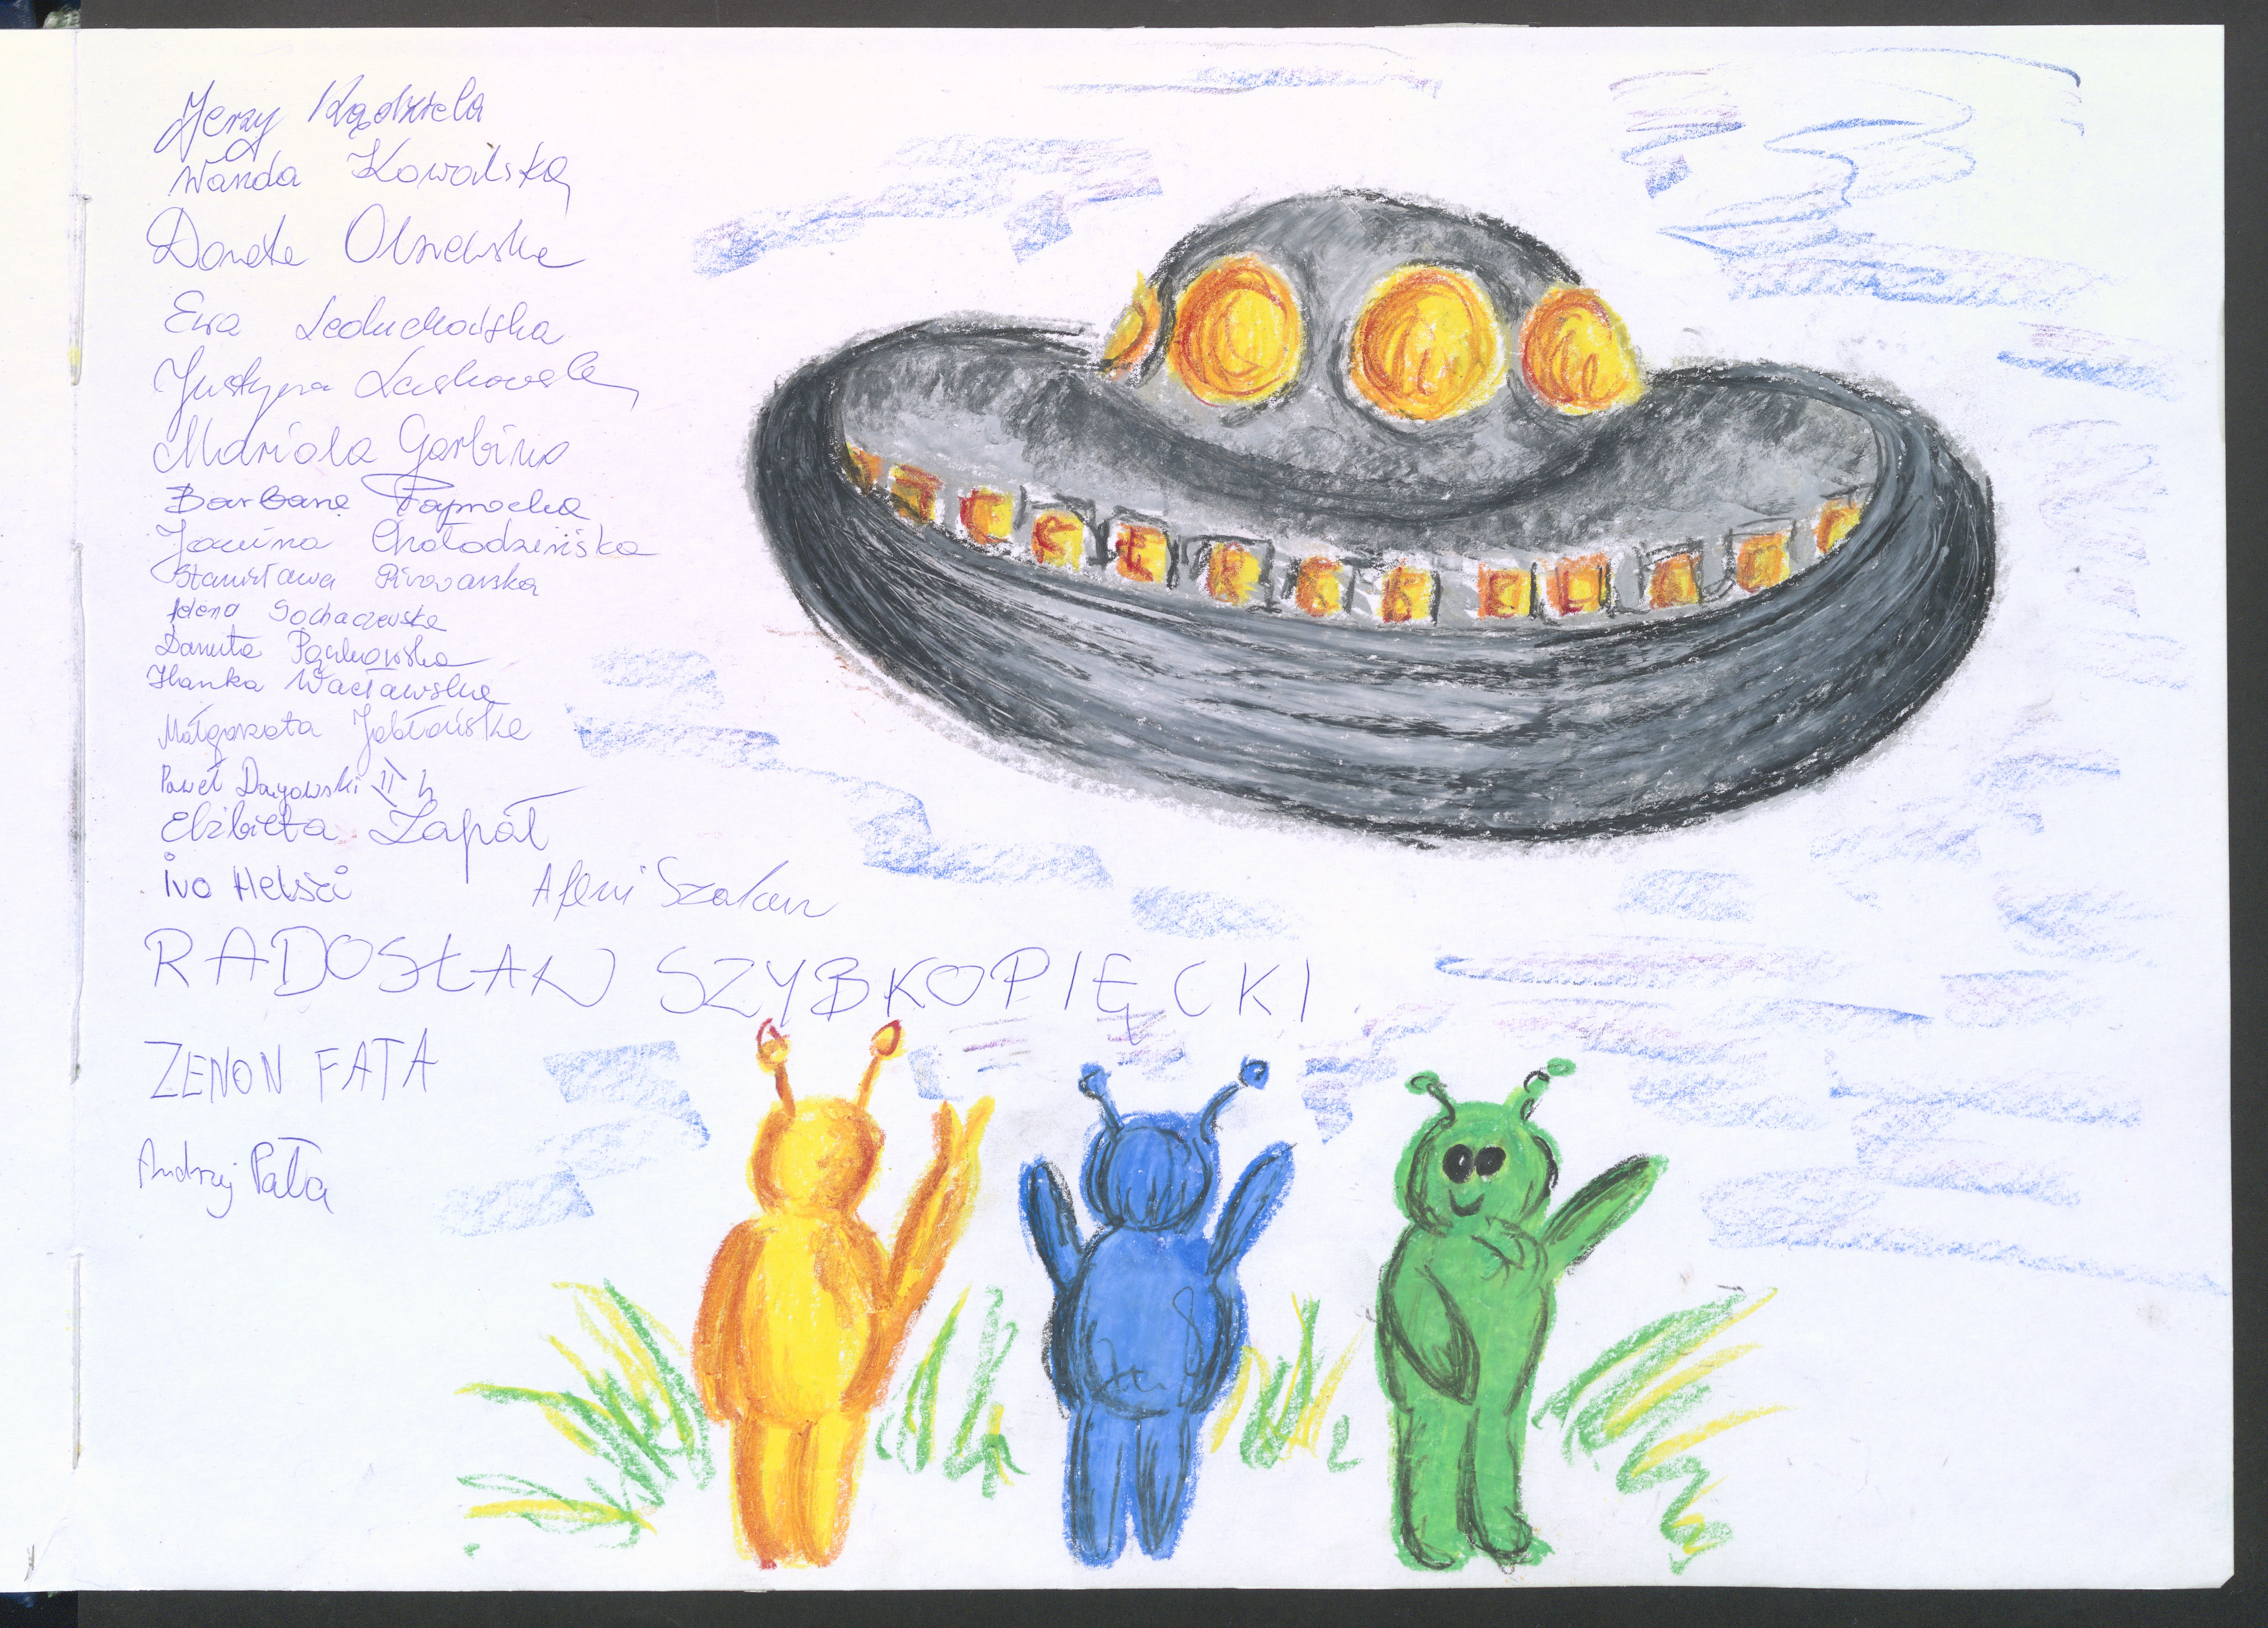 Jerzy Kądziela
Wanda Kowalska
Danuta Olszewska
Ewa Leduchowska
Justyna Laskowska
Mariola Garbino
Barbara
Janina Chołodzińska
Stanisława Piwowarska
Sochaczewska
Danuta
Hanka Wacławska
Małgorzata Jabłońska
Paweł II b
Elżbieta Zapał
ivo Helsci Szatan
RADOSŁAW SZYBKOPIĘCKI
ZENON FATA
Andrzej Pała